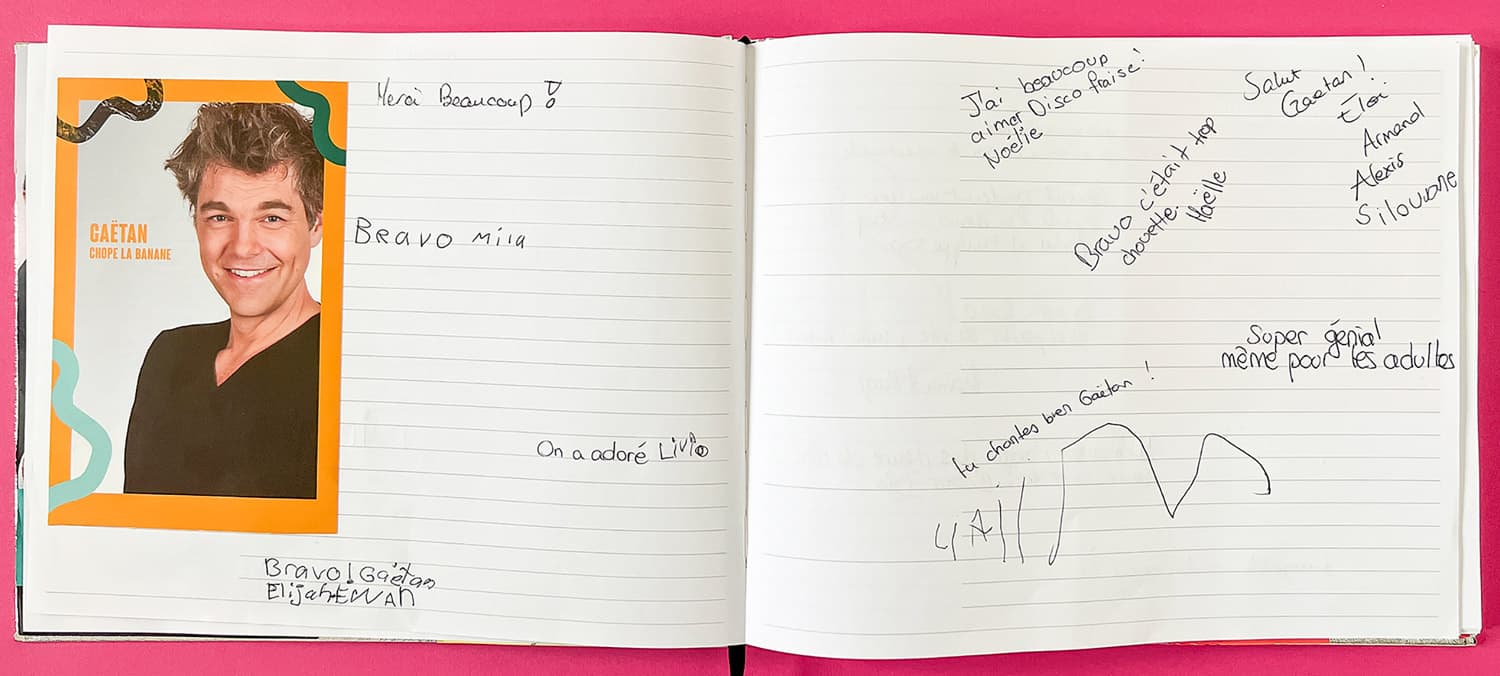 GAËTAN
CHOPE LA BANANE
Merci Beaucoup !
BRAVO Mila
On a adoré Livio
Bravo! Gaëtan
Elijah+EWAN
J'ai beaucoup
aimer Disco fraise!
Noélie
Bravo c'était trop
chouette!
Maëlle
Salut
Gaëtan!
Éloi
Armand
Alexis
Silouane
Super génial
même pour les adultes
tu chantes bien Gaëtan !